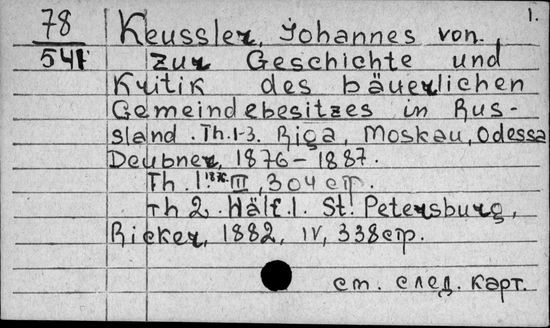 1.
78
541
Keussler, Johannes von.
zur Geschichte und
Kritik des bäuerlichen
Gemeindebesitzes in Rus-
sland. Th. 1-3. Riga, Moskau, Odessa
Deubner, 1876-1887.
Th. 1 1876. III, 304 стр.
Th 2. Hälf. 1. St. Petersburg,
Ricker, 1882, IV, 338 стр.
ст. след. карт.